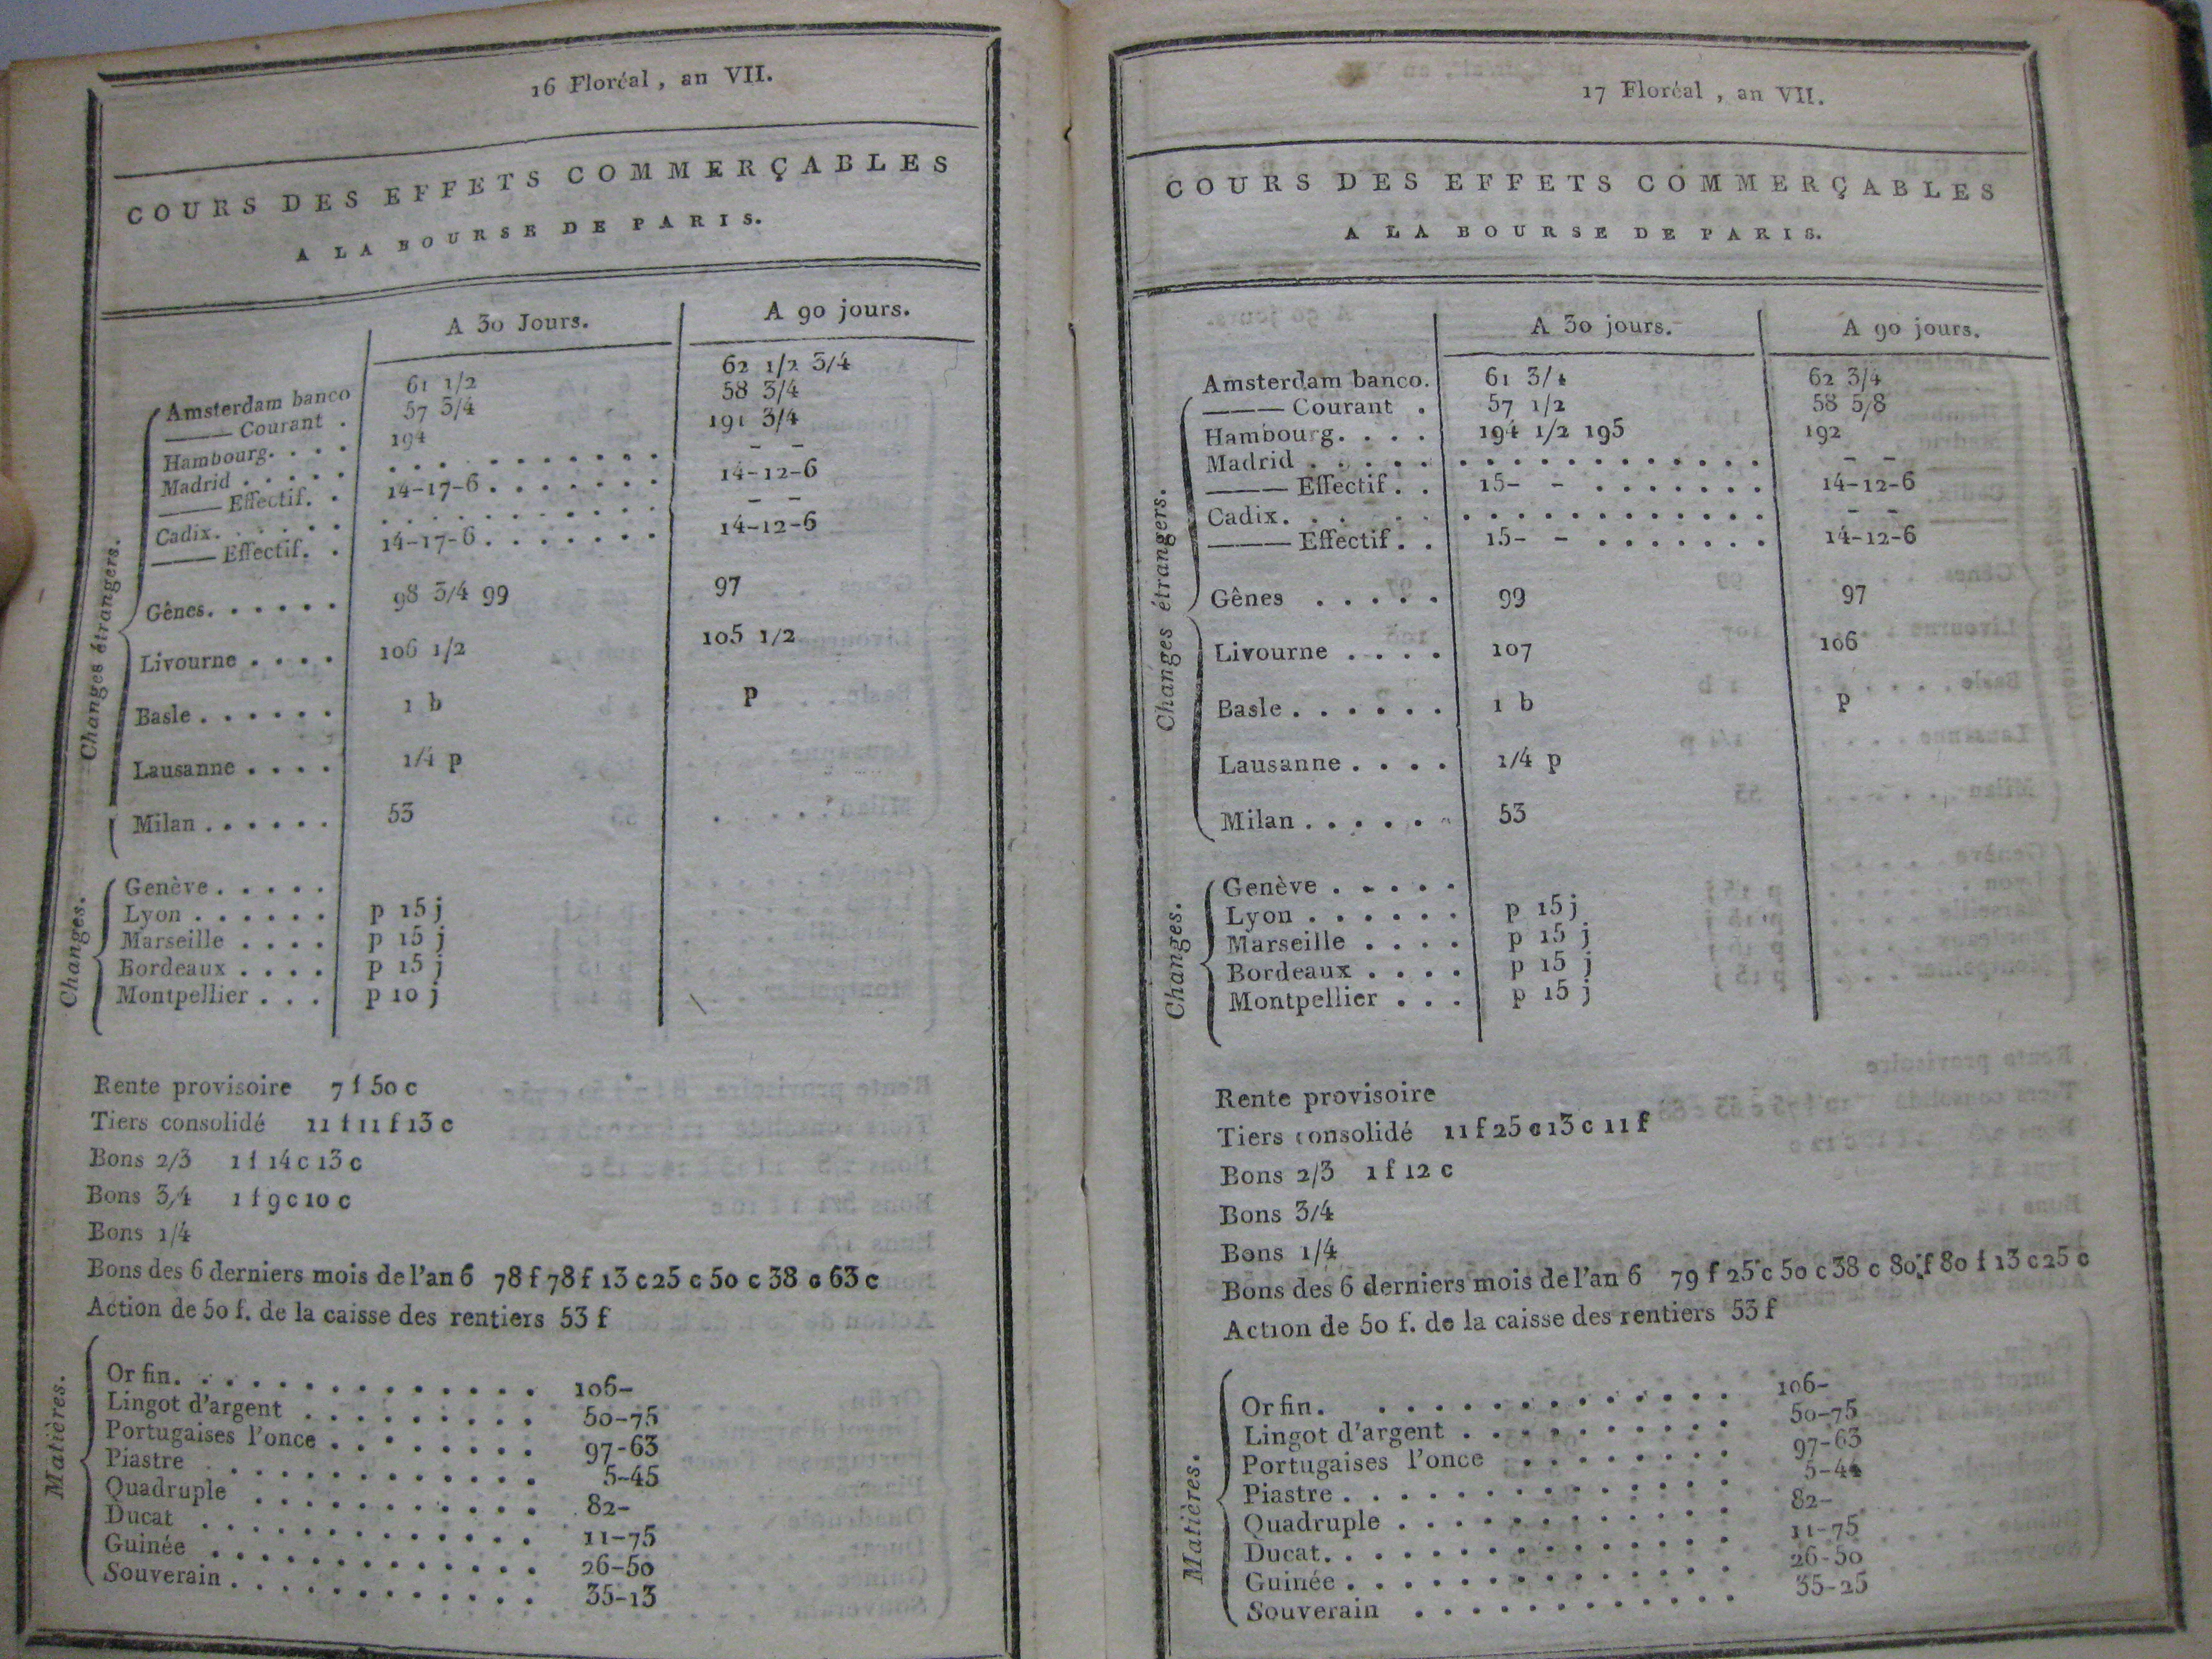 16 Floréal, an VII.
COURS DES EFFETS COMMERÇABLES
A LA BOURSE DE PARIS.
A 30 Jours. A 90 jours.
Changes étrangers.
Amsterdam banco 61 1/2 62 1/2 3/4
——— Courant . 57 3/4 58 3/4
Hambourg. . . . 194 191 3/4
Madrid . . . . . . . . . . . . . . . . . – –
——— Effectif. . 14-17-6. . . . . . . 14-12-6
Cadix. . . . . . . . . . . . . . . . . . – –
——— Effectif. . 14-17-6. . . . . . . 14-12-6
Gênes. . . . . . 98 3/4 99 97
Livourne . . . . 106 1/2 105 1/2
Basle . . . . . . 1 b p
Lausanne . . . . 1/4 p
Milan . . . . . . 53
Changes.
Genève . . . . .
Lyon . . . . . . p 15 j
Marseille . . . . p 15 j
Bordeaux . . . . p 15 j
Montpellier . . . p 10 j
Rente provisoire 7 f 50 c
Tiers consolidé 11 f 11 f 13 c
Bons 2/3 1 f 14 c 13 c
Bons 3/4 1 f 9 c 10 c
Bons 1/4
Bons des 6 derniers mois de l'an 6 78 f 78 f 13 c 25 c 50 c 38 c 63 c
Action de 50 f. de la caisse des rentiers 53 f
Matières.
Or fin. . . . . . . . . . . . . . 106-
Lingot d'argent . . . . . . . . . 50-75
Portugaises l'once . . . . . . . . 97-63
Piastre . . . . . . . . . . . . 5-45
Quadruple . . . . . . . . . . . 82-
Ducat . . . . . . . . . . . . . 11-75
Guinée . . . . . . . . . . . . . 26-50
Souverain . . . . . . . . . . . . 35-13
17 Floréal, an VII.
COURS DES EFFETS COMMERÇABLES
A LA BOURSE DE PARIS.
A 30 jours. A 90 jours.
Changes étrangers.
Amsterdam banco. 61 3/4 62 3/4
——— Courant . 57 1/2 58 5/8
Hambourg. . . . 194 1/2 195 192
Madrid . . . . . . . . . . . . . . . . . – –
——— Effectif. . 15- - . . . . . . . 14-12-6
Cadix. . . . . . . . . . . . . . . . . . – –
——— Effectif. . 15- - . . . . . . . 14-12-6
Gênes . . . . . 99 97
Livourne . . . . 107 106
Basle . . . . . . 1 b p
Lausanne . . . . 1/4 p
Milan . . . . . . 53
Changes.
Genève . . . . .
Lyon . . . . . . p 15 j
Marseille . . . . p 15 j
Bordeaux . . . . p 15 j
Montpellier . . . p 15 j
Rente provisoire
Tiers consolidé 11 f 25 c 13 c 11 f
Bons 2/3 1 f 12 c
Bons 3/4
Bons 1/4
Bons des 6 derniers mois de l'an 6 79 f 25 c 50 c 38 c 80 f 80 f 13 c 25 c
Action de 50 f. de la caisse des rentiers 53 f
Matières.
Or fin. . . . . . . . . . . . . . 106-
Lingot d'argent . . . . . . . . . . 50-75
Portugaises l'once . . . . . . . . 97-63
Piastre . . . . . . . . . . . . . . 5-44
Quadruple . . . . . . . . . . . . 82-
Ducat. . . . . . . . . . . . . . . 11-75
Guinée . . . . . . . . . . . . . . 26-50
Souverain . . . . . . . . . . . . 35-25